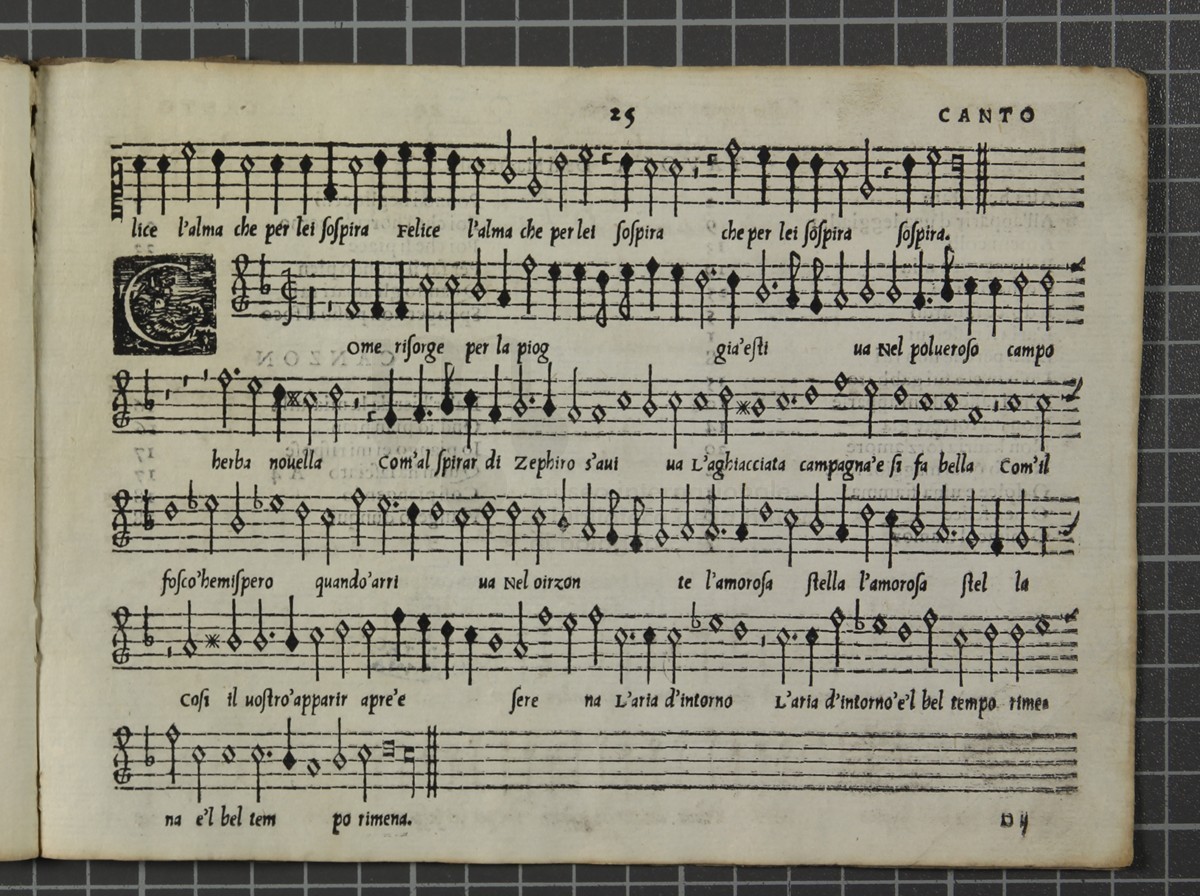 25 CANTO
lice l'alma che per lei ſoſpira Felice l'alma che per lei ſoſpira che per lei ſoſpira ſoſpira.
COme riſorge per la piog gia'eſti ua Nel polueroſo campo
herba nouella Com'al ſpirar di Zephiro s'aui ua L'aghiacciata campagna'e ſi fa bella Com'il
foſco'hemiſpero quando'arri ua Nel oirzon te l'amoroſa ſtella l'amoroſa ſtel la
Coſi il uoſtro'apparir apre'e ſere na L'aria d'intorno L'aria d'intorno'e'l bel tempo rime
na e'l bel tem po rimena.
D ij